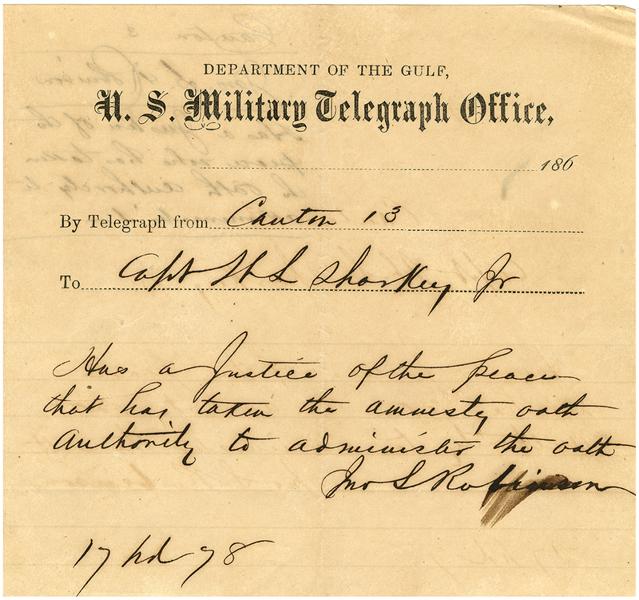 DEPARTMENT OF THE GULF,
U. S. Military Telegraph Office,
186
By Telegraph from Canton 13
To Capt W L Sharkey Jr
Has a Justice of the peace
that has taken the amnesty oath
Authority to administer the oath
Jno S Robinson
17 pd 78